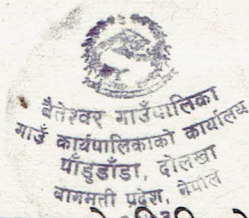 बैतेश्वर गाउँपालिका
गाउँ कार्यपालिकाको कार्यालय
पाँडुडाँडा, दोलखा
बागमती प्रदेश, नेपाल